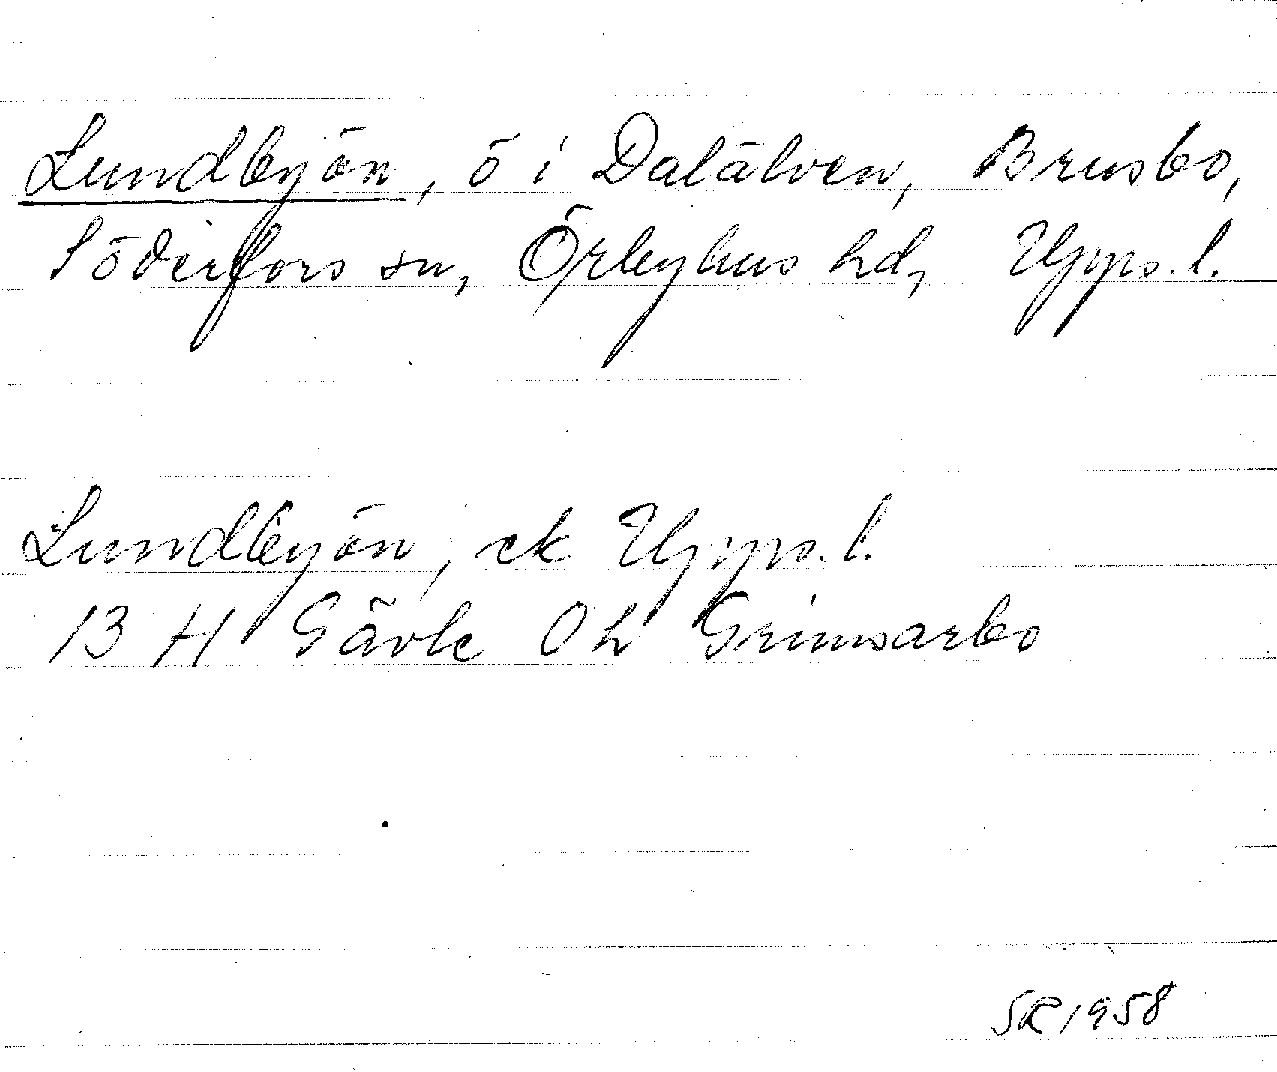 Lundbyön, ö i Dalälven, Brusbo,
Söderfors sn, Örbyhus hd, Upps. l.
Lundbyön, ek Upps. l.
13 H Gävle Oh Grimsarbo
SR 1958